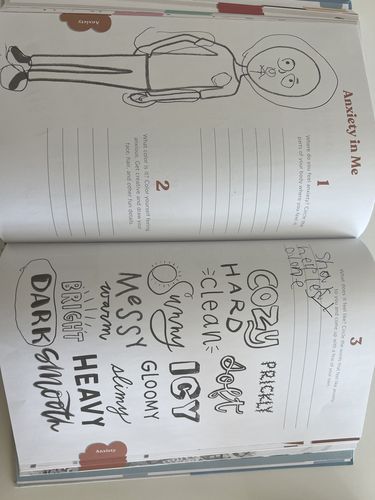 Anxiety
Anxiety in Me
1
Where do you feel anxiety? Circle the
parts of your body where you feel it.
2
What color is it? Color yourself feeling
anxious. Get creative and draw your
face, hair, and other fun details.
3
What does it feel like? Circle the words that feel like anxiety
to you and come up with a few of your own.
alone
COZY PRICKLY
HARD soft
clean
Sunny ICY
MESSY GLOOMY
warm slimy
BRIGHT HEAVY
DARK smooth
Anxiety